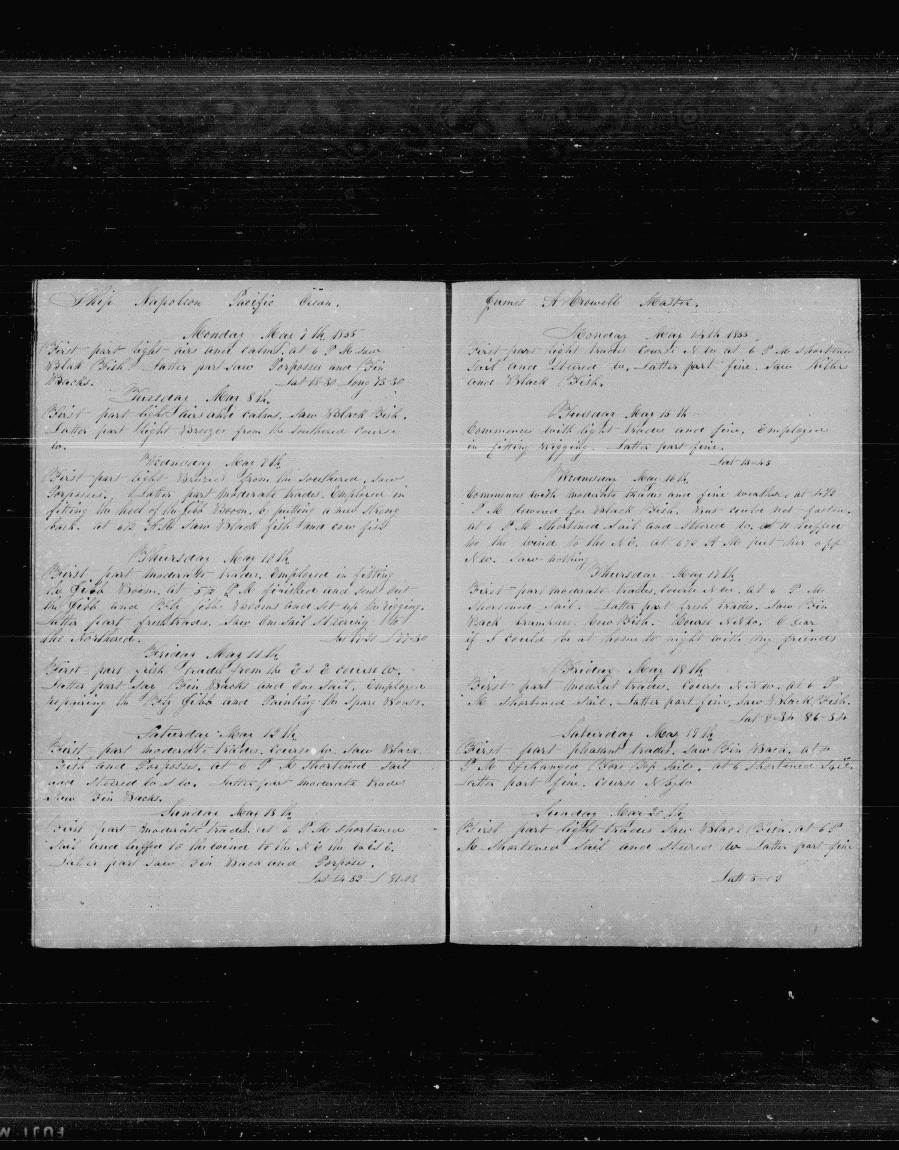 Ship Napoleon Pacific Ocean.
Monday May 7th 1855
First part light airs and calms, at 6 P M saw
Black Fish. Latter part saw Porposses and Fin
Backs. Lat 18-30 Long 73-30
Tuesday May 8th
First part light airs and calms. Saw Black Fish.
Latter part light Breezes from the southered course
W.
Wednesday May 9th
First part light Breezes from the southered, saw
Porposses. Latter part moderate trades. Employed in
fitting the heel of the Jibb Boom. by putting a new
at 6 1/2 A M saw Black fish and cow fish
Thursday May 10th
First part moderate trades. Employed in fitting
the Jibb Boom. at 5 1/2 P M finished and sent out
the Jibb and Fly Jibb Booms and set up the rigging.
Latter part fresh trades. Saw One Sail steering to
the Northered. L 77-30
Friday May 11th
First part fresh trades from the E S E course W.
Latter part saw Fin Backs and One Sail. Employed
repairing the Fly Jibb and Painting the Spare Boats.
Saturday May 12th
First part moderate trades. Course W. Saw Black
Fish and Porposses. at 6 P M shortened sail
and steered W S W. Latter part moderate trades
Saw Fin Backs.
Sunday May 13th
First part moderate trades. at 6 P M shortened
Sail and luffed to the wind to the N E the
Latter part saw Fin Back and Porposs.
Lat 14 52 L 81-43
James A Crowell Master.
Monday May 14th 1855
First part light trades Course N W at 6 P M shortened
Sail and steered W. Latter part fine. Saw Killer
and Black Fish.
Tuesday May 15th
Commences with light trades and fine. Employed
in fitting Rigging. Latter part fine.
Lat 13-43
Wednesday May 16th
Commences with moderate trades and fine weather. at 4 1/2
P M lowered for Black Fish. But could not fasten.
at 6 P M Shortened Sail and steered W. at 11 luffed
to the wind to the N E. at 6 1/2 A M put her off
N W. Saw nothing
Thursday May 17th
First part moderate trades, Course N W. at 6 P M
Shortened Sail. Latter part fresh trades. Saw Fin
Back Cow Fish. Course N W. O dear
if I could be at home to night with my friends
Friday May 18th
First part moderate trades. Course N N W. at 6 P
M shortened Sail. Latter part fine, saw Black Fish.
Lat 8-34 86-34
Saturday May 19th
First part pleasant trades. Saw Fin Back. at 4
P M Exchanged Fore Top Sails. at 6 shortened Sail.
Latter part fine. Course N by W
Sunday May 20th
First part light trades Saw Black Fish. at 6 P
M Shortened Sail and steered W Latter part fine
Latt